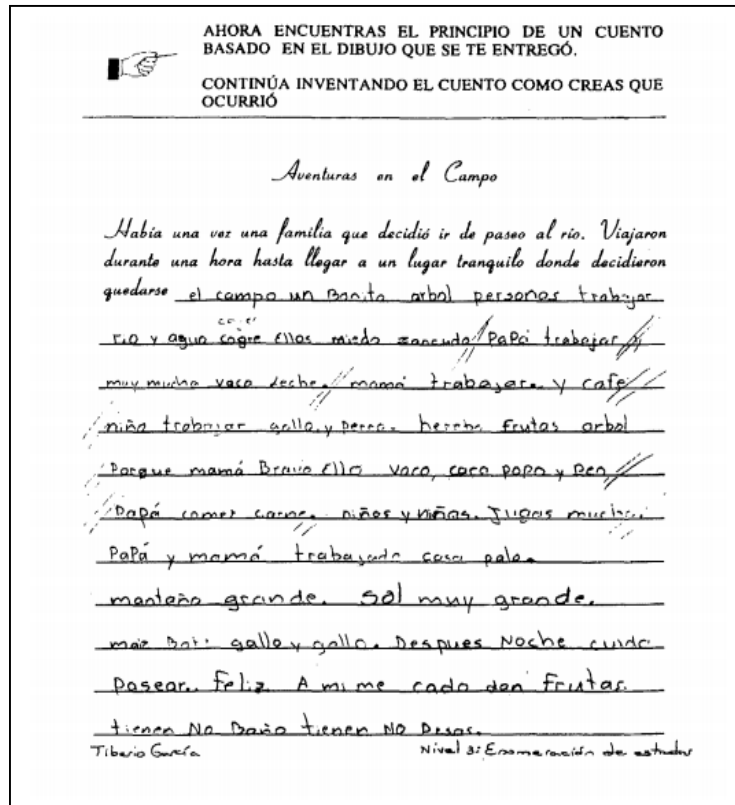 AHORA ENCUENTRAS EL PRINCIPIO DE UN CUENTO
BASADO EN EL DIBUJO QUE SE TE ENTREGÓ.
CONTINÚA INVENTANDO EL CUENTO COMO CREAS QUE
OCURRIÓ
Aventuras en el Campo
Había una vez una familia que decidió ir de paseo al río. Viajaron
durante una hora hasta llegar a un lugar tranquilo donde decidieron
quedarse el campo un Bonito arbol personas trabajar
rio y agua cogre Ellos miedo zancudo PaPá trabajar
muy mucha vaca leche. mamá trabajar. y café
niño trabajar gallo, y perro. frutas arbol
Porque mamá Bravo Ello vaca, papa y
Papá comer carne. niños y niñas. Jugas mucha.
PaPá y mamá trabajado casa palo.
montaña grande. Sol muy grande.
maiz gallo y gallo. Despues Noche cuida
Pasear. Feliz. A mi me cada dan Frutas.
tienen No Baño tienen No
Tiberio García Nivel 3: Enumeración de estados